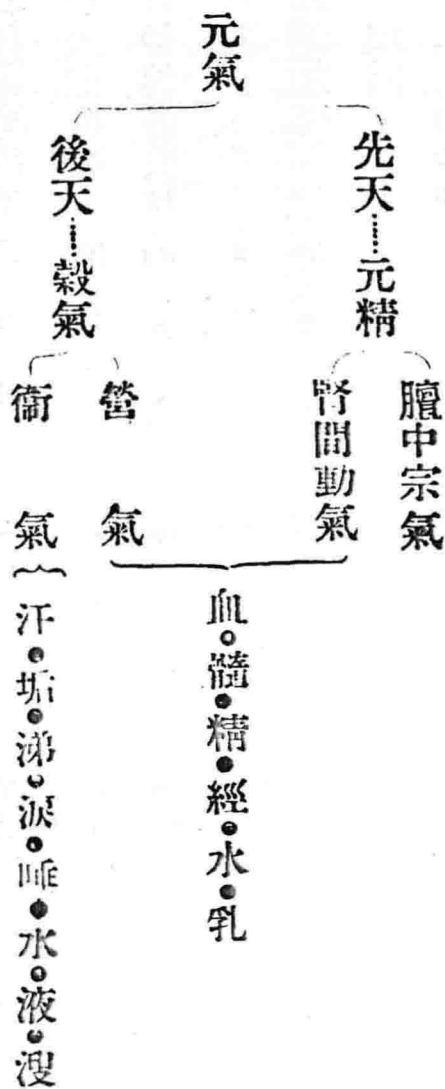 元氣
先天……元精
膻中宗氣
腎間動氣
後天……穀氣
營氣
衞氣
血•髓•精•經•水•乳
汗•垢•涕•淚•唾•水•液•溲